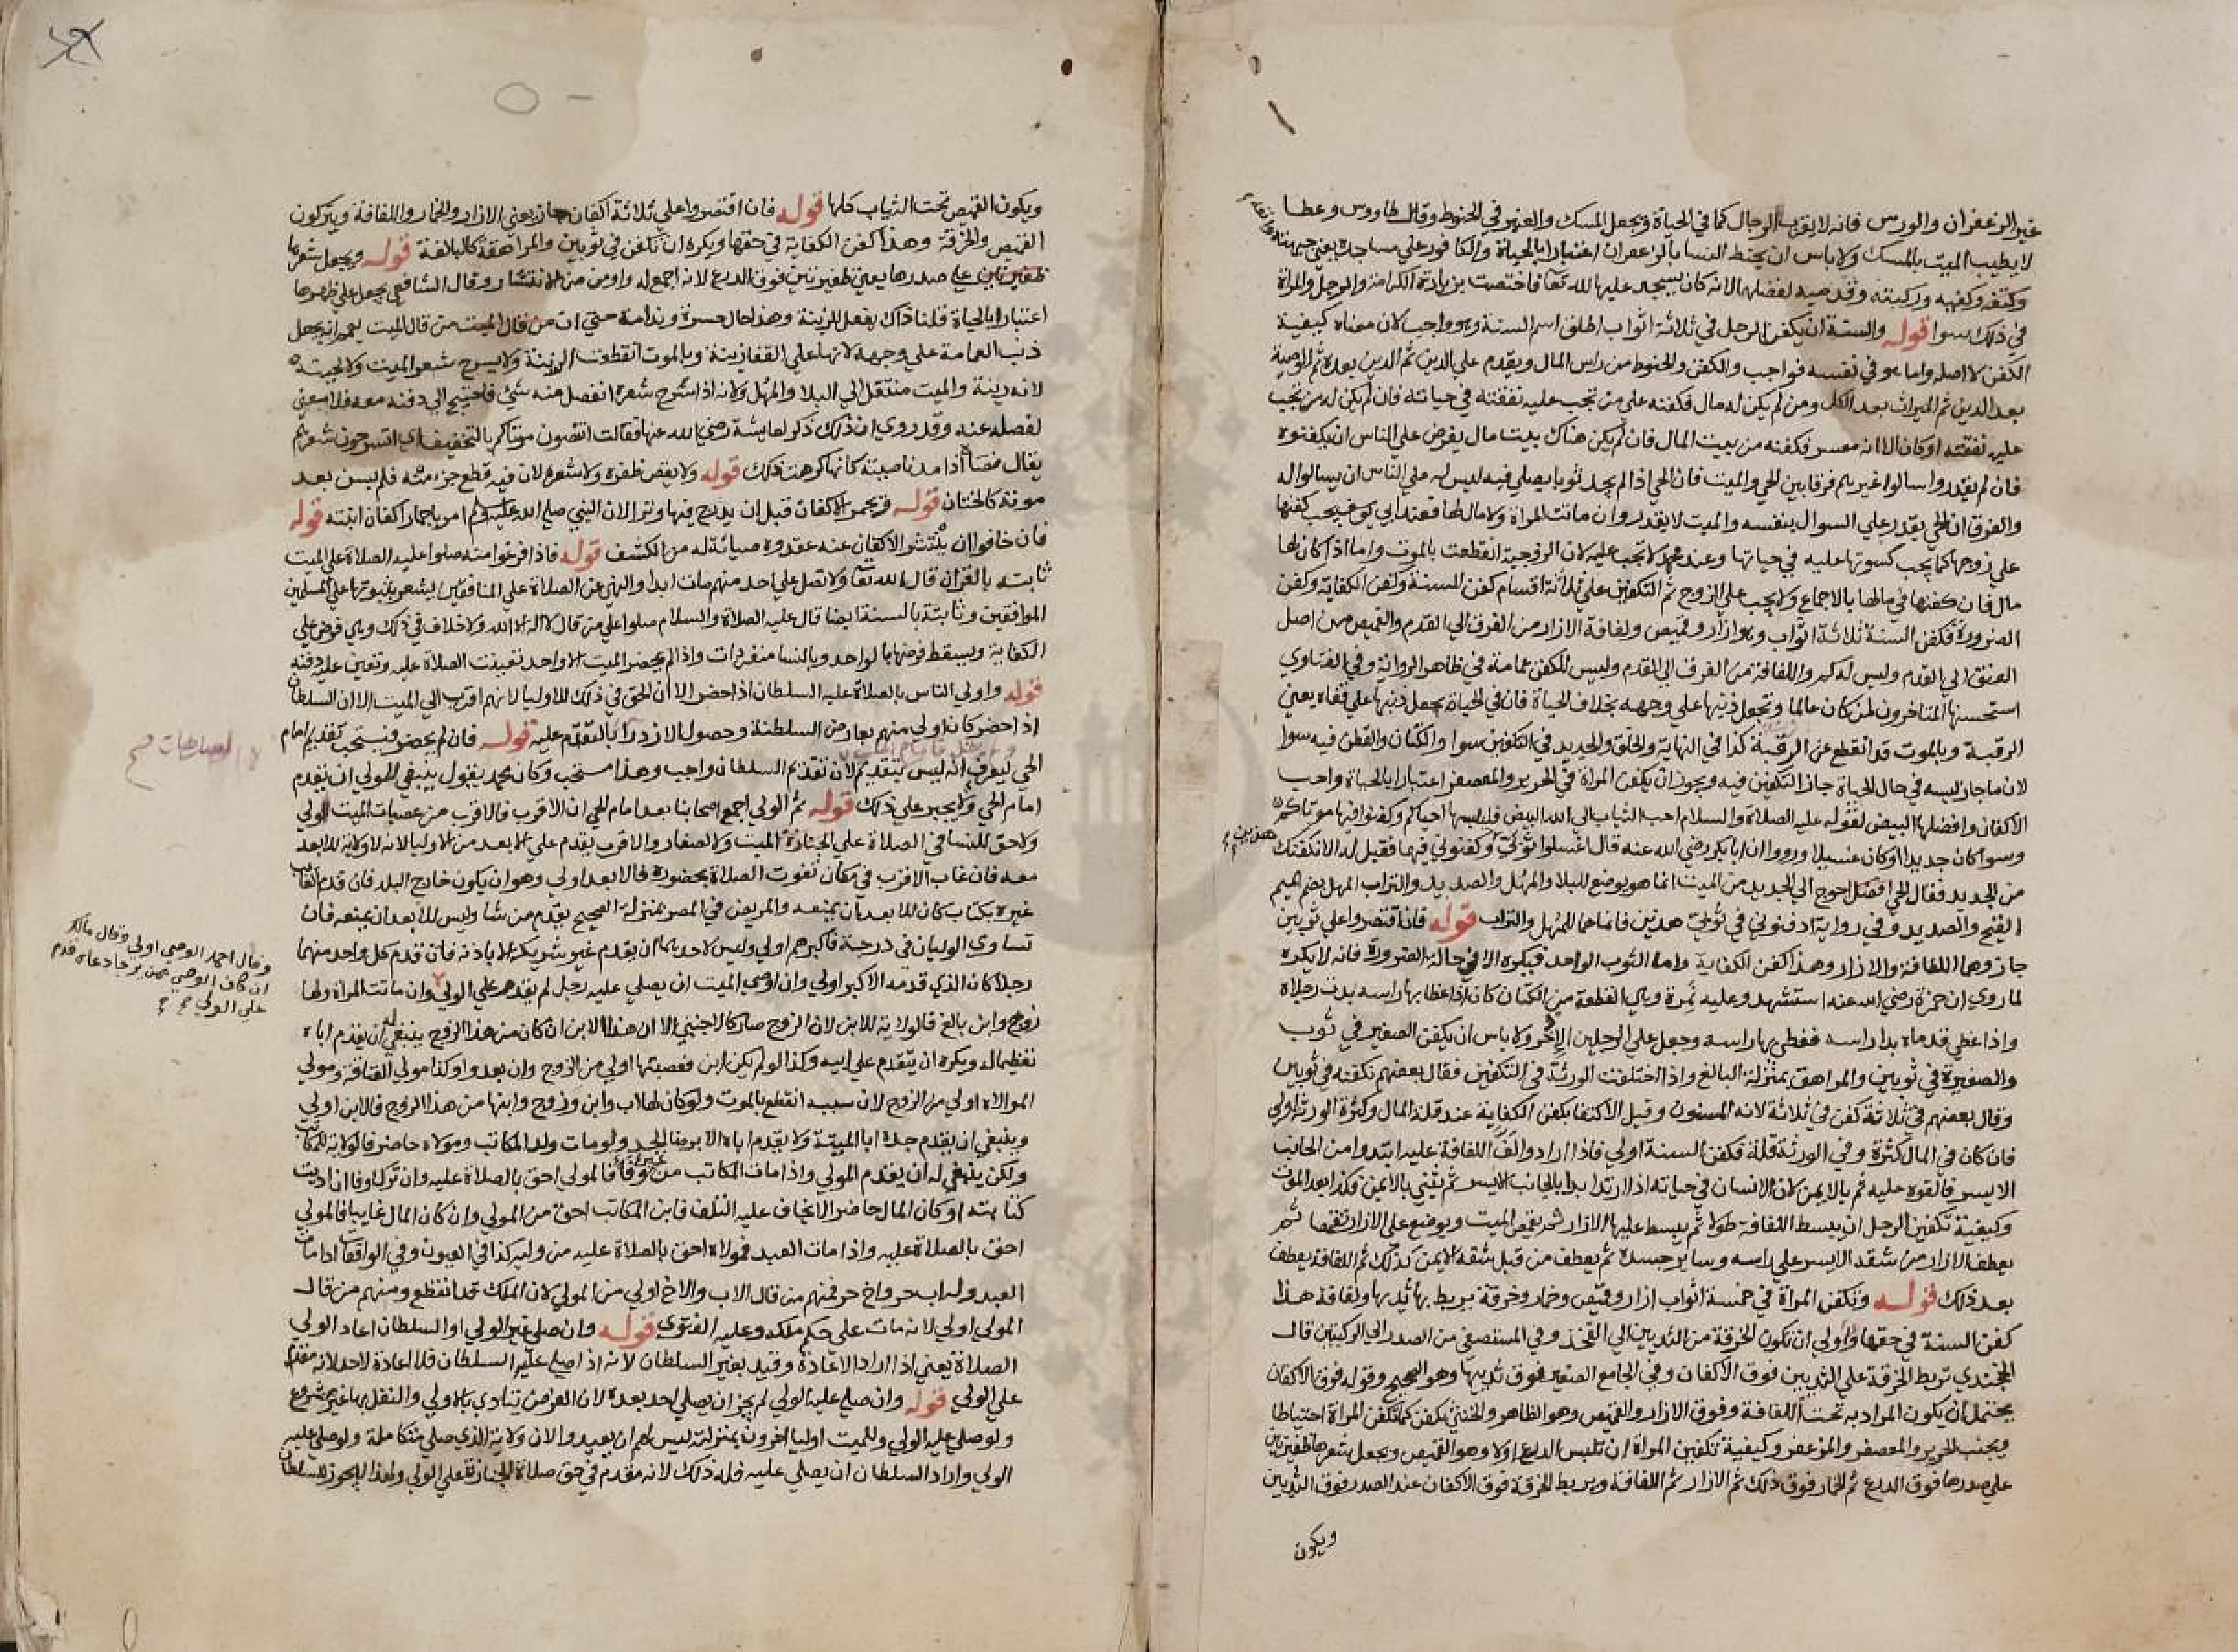 غير الزعفران والورس فانه لا يقرب الرجال كما في الحياة ويجعل المسك والعنبر في الحنوط وقال طاووس وعطا
لا يطيب الميت بالمسك ولا باس ان يحنط النسا بالزعفران اعتبارا بالحياة والكافور على مساجده يعني جبهته وانفه
وكتفه وكفيه وركبتيه وقدميه لفضلها لانه كان يسجد عليها لله تعا فاختصت بزيادة الكرامة والرجل والمراة
في ذلك سوا قوله والسنة ان يكفن الرجل في ثلاثة اثواب اطلق اسم السنة وهو واجب لان معناه كيفية
الكفن لا اصله واما هو في نفسه فواجب والكفن والحنوط من راس المال ويقدم علي الدين ثم الدين بعده ثم الوصية
بعد الدين ثم الميراث بعد الكل ومن لم يكن له مال فكفنه على من تجب عليه نفقته في حياته فان لم يكن له من تجب
عليه نفقته او كان الا انه معسر فكفنه من بيت المال فان لم يكن هناك بيت مال يفرض علي الناس ان يكفنوه
فان لم يقدروا سالوا غيرهم فرقا بين الحي والميت فان الحي اذا لم يجد ثوبا يصلي فيه ليس له علي الناس ان يسالوا له
والفرق ان الحي يقدر علي السوال بنفسه والميت لا يقدر وان ماتت المراة ولا مال لها فعند ابي يوسف يجب كفنها
علي زوجها كما يجب كسوتها عليه في حياتها وعند محمد لا تجب عليه لان الزوجية انقطعت بالموت واما اذا كان لها
مال فان كفنها في مالها بالاجماع ولا يجب علي الزوج ثم التكفين علي ثلاثة اقسام كفن السنة وكفن الكفاية وكفن
الضرورة فكفن السنة ثلاثة اثواب وهو ازار وقميص ولفافة الازار من القرن الي القدم والقميص من اصل
العنق الي القدم وليس له كم واللفافة من القرن الي القدم وليس للكفن عمامة في ظاهر الرواية وفي الفتاوي
استحسنها المتاخرون لمن كان عالما وتجعل ذنبها علي وجهه بخلاف الحياة فان في الحياة يجعل ذنبها علي قفاه يعني
الرقبة وبالموت قد انقطع عن الرقبة كذا في النهاية والخلق والجديد في التكفين سوا والكتان والقطن فيه سوا
لان ما جاز لبسه في حال الحياة جاز التكفين فيه ويجوز ان يكفن المراة في الحرير والمعصفر اعتبارا بالحياة واحب
الاكفان وافضلها البيض لقوله عليه الصلاة والسلام احب الثياب الي الله البيض فليلبسها احياكم وكفنوا فيها موتاكم
وسوا كان جديدا او كان غسيلا ورووا ان ابا بكر رضي الله عنه قال اغسلوا ثوبي هذين وكفنوني فيهما فقيل له الا نكفنك
من الجديد فقال الحي افضل احوج الي الجديد من الميت انما هو يوضع للبلا والمهل والصديد والتراب المهل بضم الميم
القيح والصديد وفي رواية ادفنوني في ثوبي هذين فانما هما للمهل والتراب قوله فان اقتصروا علي ثوبين
جاز وهما اللفافة والازار وهذا كفن الكفاية واما الثوب الواحد فيكره الا في حالة الضرورة فانه لا يكره
لما روي ان حمزة رضي الله عنه استشهد وعليه نمرة وهي القطعة من الكتان كان اذا غطا بها راسه بدت رجلاه
واذا غطي قدماه بدا راسه فغطي بها راسه وجعل علي الرجلين الاذخر ولا باس ان يكفن الصغير في ثوب
والصغيرة في ثوبين والمراهق بمنزلة البالغ واذا اختلفت الورثة في التكفين فقال بعضهم نكفنه في ثوبين
وقال بعضهم في ثلاثة كفن في ثلاثة لانه المسنون وقيل الاكتفا بكفن الكفاية عند قلة المال وكثرة الورثة اولي
فان كان في المال كثرة وفي الورثة قلة فكفن السنة اولي فاذا ارادوا لف اللفافة عليه ابتدوا من الجانب
الايسر فالقوه عليه ثم بالايمن لان الانسان في حياته اذا ارتدا بدا بالجانب الايسر ثم يثني بالايمن فكذا بعد الموت
وكيفية تكفين الرجل ان يبسط اللفافة طولا ثم يبسط عليها الازار ثم يقمص الميت ويوضع علي الازار مقمصا ثم
يعطف الازار من شقه الايسر علي راسه وساير جسده ثم يعطف من قبل شقه الايمن كذلك ثم اللفافة يعطف
بعد ذلك قوله وتكفن المراة في خمسة اثواب ازار وقميص وخمار وخرقة يربط بها ثدياها ولفافة هذا
كفن السنة في حقها والاولي ان يكون الخرقة من الثديين الي الفخذ وفي المستصفي من الصدر الي الركبتين قال
الخجندي تربط الخرقة علي الثديين فوق الاكفان وفي الجامع الصغير فوق ثدييها وهو الصحيح وقوله فوق الاكفان
يحتمل ان يكون المراد به تحت اللفافة وفوق الازار والقميص وهو الظاهر والخنثي يكفن كما تكفن المراة احتياطا
ويجنب الحرير والمعصفر والمزعفر وكيفية تكفين المراة ان تلبس الدرع اولا وهو القميص ويجعل شعرها ظفيرتين
علي صدرها فوق الدرع ثم الخمار فوق ذلك ثم الازار ثم اللفافة ويربط الخرقة فوق الاكفان عند الصدر فوق الثديين
ويكون
ويكون القميص تحت الثياب كلها قوله فان اقتصروا علي ثلاثة اكفان جاز يعني الازار والخمار واللفافة ويتركون
القميص والخرقة وهذا كفن الكفاية في حقها ويكره ان تكفن في ثوبين والمراهقة كالبالغة قوله ويجعل شعرها
ظفيرتين علي صدرها يعني ظفيرتين فوق الدرع لانه اجمع له وامن من الانتشار وقال الشافعي يجعل علي ظهرها
اعتبارا بالحياة قلنا ذاك يفعل للزينة وهذا حال حسرة وندامة حتي ان من قال الميت من قال الميت يعمم انه يجعل
ذنب العمامة علي وجهه لانها علي القفا زينة وبالموت انقطعت الزينة ولا يسرح شعر الميت ولا لحيته
لانه زينة والميت منتقل الي البلا والمهل ولانه اذا سرح شعره انفصل منه شئ فاحتيج الي دفنه معه فلا معني
لفصله عنه وقد روي ان ذلك ذكر لعايشة رضي الله عنها فقالت اتنصون موتاكم بالتخفيف اي اتسرحون شعرهم
يقال نصا اذا مد ناصيته كانها كرهت ذلك قوله ولا يقص ظفره ولا شعره لان فيه قطع جزء منه فلم يسن بعد
موته كالختان قوله وتجمر الاكفان قبل ان يدرج فيها وترا لان النبي صلي الله عليه وسلم امر باجمار اكفان ابنته قوله
فان خافوا ان ينتشر الاكفان عنه عقدوه صيانة له من الكشف قوله فاذا فرغوا منه صلوا عليه الصلاة علي الميت
ثابتة بالقران قال الله تعا ولا تصل علي احد منهم مات ابدا والنهي عن الصلاة علي المنافقين يشعر بثبوتها علي المسلمين
الموافقين وثابتة بالسنة ايضا قال عليه الصلاة والسلام صلوا علي من قال لا اله الا الله ولا خلاف في ذلك وهي فرض علي
الكفاية ويسقط فرضها بالواحد وبالنسا منفردات واذا لم يحضر الميت الا واحد تعينت الصلاة عليه وتعين عليه دفنه
قوله واولي الناس بالصلاة عليه السلطان اذا حضر الا ان الحق في ذلك للاوليا لانهم اقرب الي الميت الا ان السلطان
اذا حضر كان اولي منهم بعارض السلطنة وحصول الازدرا بالتقدم عليه قوله فان لم يحضر فيستحب تقديم امام
الحي ليعرف انه ليس بتقديم لان تقديم السلطان واجب وهذا مستحب وكان محمد يقول ينبغي للولي ان يقدم
امام الحي ولا يجبر علي ذلك قوله ثم الولي اجمع اصحابنا بعد امام الحي ان الاقرب فالاقرب من عصبات الميت الولي
ولا حق للنسا في الصلاة علي الجنازة الميت ولا الصغار والاقرب يقدم علي الابعد من الاوليا لانه لا ولاية للابعد
معه فان غاب الاقرب في مكان تفوت الصلاة بحضوره فالابعد اولي وهو ان يكون خارج البلد فان قدم الغايب
غيره بكتاب كان للابعد ان يمنعه والمريض في المصر بمنزلة الصحيح يقدم من شا وليس للابعد ان يمنعه فان
تساوي الوليان في درجة فاكبرهم اولي وليس لاحدهما ان يقدم غير شريكه الا باذنه فان قدم كل واحد منهما
رجلا كان الذي قدمه الاكبر اولي وان اوصي الميت ان يصلي عليه رجل لم يقدم علي الولي وان ماتت المراة ولها
زوج وابن بالغ فالولاية للابن لان الزوج صار كالاجنبي الا ان هذا الابن ان كان من هذا الزوج ينبغي له ان يقدم اباه
تعظيما له ويكره ان يتقدم علي ابيه وكذا لو لم يكن ابن فعصبتها اولي من الزوج وان بعدوا وكذا مولي العتاقة ومولي
الموالاة اولي من الزوج لان سببه انقطع بالموت ولو كان لها اب وابن وزوج وابنها من هذا الزوج فالابن اولي
وينبغي ان يقدم جده ابا الميتة ولا يقدم اباه الا برضا الجد ولو مات ولد المكاتب ومولاه حاضر فالولاية للمكاتب
ولكن ينبغي له ان يقدم المولي واذا مات المكاتب من غير وفا فالمولي احق بالصلاة عليه وان ترك وفا ان اديت
كتابته او كان المال حاضرا لا يخاف عليه التلف فابن المكاتب احق من المولي وان كان المال غايبا فالمولي
احق بالصلاة عليه واذا مات العبد فمولاه احق بالصلاة عليه من وليه كذا في العيون وفي الواقعات اذا مات
العبد وله اب حر واخ حر فمنهم من قال الاب والاخ اولي من المولي لان الملك قد انقطع ومنهم من قال
المولي اولي لانه مات علي حكم ملكه وعليه الفتوي قوله وان صلي غير الولي او السلطان اعاد الولي
الصلاة يعني اذا اراد الاعادة وقيد بغير السلطان لانه اذا صلي عليه السلطان فلا اعادة لاحد لانه مقدم
علي الولي قوله وان صلي عليه الولي لم يجز ان يصلي احد بعده لان الفرض يتادي بالاولي والنفل بها غير مشروع
ولو صلي عليه الولي وللميت اوليا اخرون بمنزلته ليس لهم ان يعيدوا لان ولاية الذي صلي متكاملة ولو صلي عليه
الولي واراد السلطان ان يصلي عليه فله ذلك لانه مقدم في حق صلاة الجنازة علي الولي ولهذا لا يجوز للسلطان
وقال احمد الوصي اولي وقال مالك
ان كان الوصي ممن يرجا دعاه قدم
علي الولي